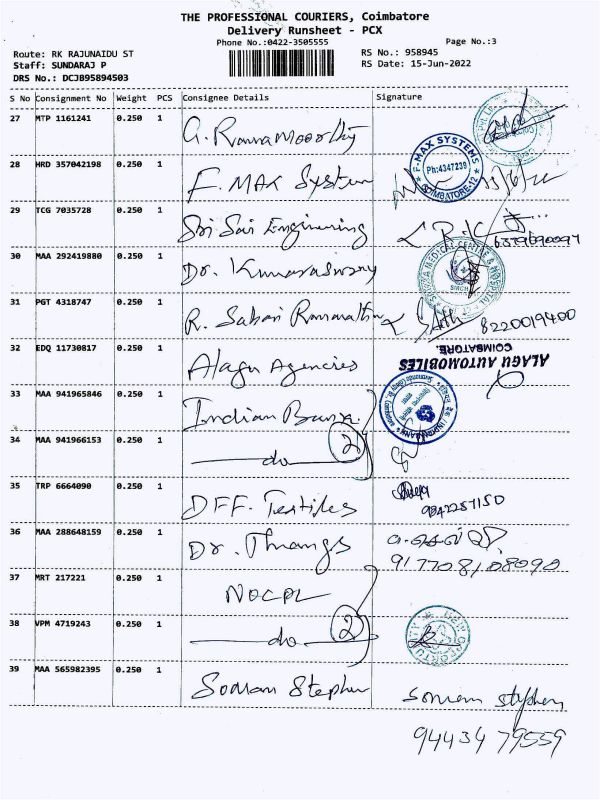 THE PROFESSIONAL COURIERS, Coimbatore
Delivery Runsheet - PCX
Phone No.:0422-3505555
Page No.:3
Route: RK RAJUNAIDU ST
RS No.: 958945
Staff: SUNDARAJ P
RS Date: 15-Jun-2022
DRS No.: DCJB95894503
S No Consignment No Weight PCS Consignee Details Signature
27 MTP 1161241 0.250 1 G. Ramamoorthy
28 HRD 357042198 0.250 1 F. MAX System
F-MAX SYSTEMS Ph:4347239 COIMBATORE-12
29 TCG 7035728 0.250 1 Sri Sai Engineering
30 MAA 292419880 0.250 1 Dr. Kumaraswamy
MEDICAL CENTRE & HOSPITAL
31 PGT 4318747 0.250 1 R. Sabari 8220019400
32 EDQ 11730817 0.250 1 Alagu Agencies
ALAGU AUTOMOBILES
COIMBATORE.
33 MAA 941965846 0.250 1 Indian Bank
34 MAA 941966153 0.250 1 do 2
35 TRP 6664090 0.250 1 DFF. Textiles 9842257150
36 MAA 288648159 0.250 1 Dr. Thangs
917708108090
37 MRT 217221 0.250 1 NOCPL
38 VPM 4719243 0.250 1 do 2
39 MAA 565982395 0.250 1 Sonam Stephen
94434 79559